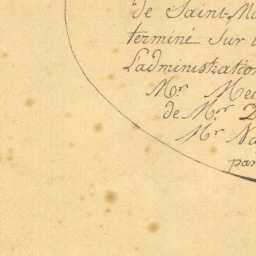 de Saint-M
terminé Sur
Ladministration
Mr. Me
de Mr. D
Mr Na
par